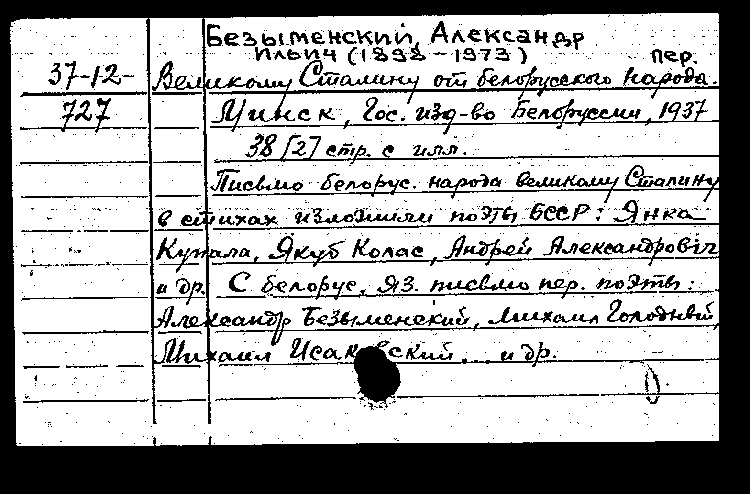 Безыменский, Александр
Ильич (1898-1973)
пер.
37-12- Великому Сталину от белорусского народа.
727 Минск, Гос. изд-во Белоруссии, 1937
38 [2] стр. с илл.
Письмо белорус. народа великому Сталину
в стихах изложили поэты БССР: Янка
Купала, Якуб Колас, Андрей Александрович
и др. С белорус. яз. письмо пер. поэты:
Александр Безыменский, Михаил Голодный,
Михаил Исаковский... и др.